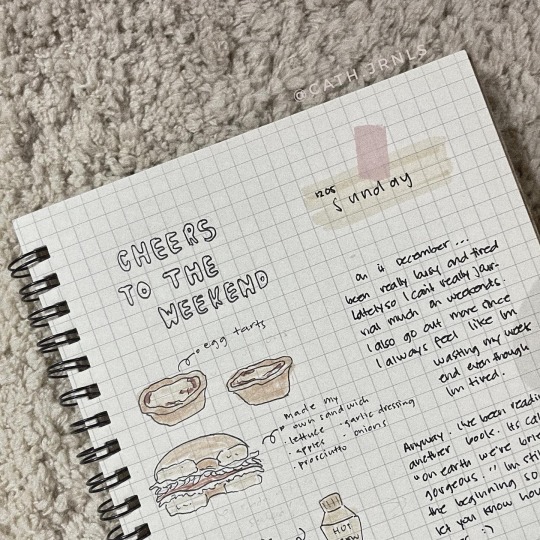 @CATH JRNLS
1205
Sunday
CHEERS
TO THE
WEEKEND
egg tarts
made my
own sandwich
· lettuce · garlic dressing
· apples · onions
· prosciutto
HOT
on it december ...
been really busy and tired
lately so I can't really jour-
nal much on weekends.
I also go out more since
I always feel like Im
wasting my week
end even though
Im tired.
Anyway. I've been readi
another book. Its cal
"on earth we're brie
gorgeous." Im still
the beginning so
let you know how
:)